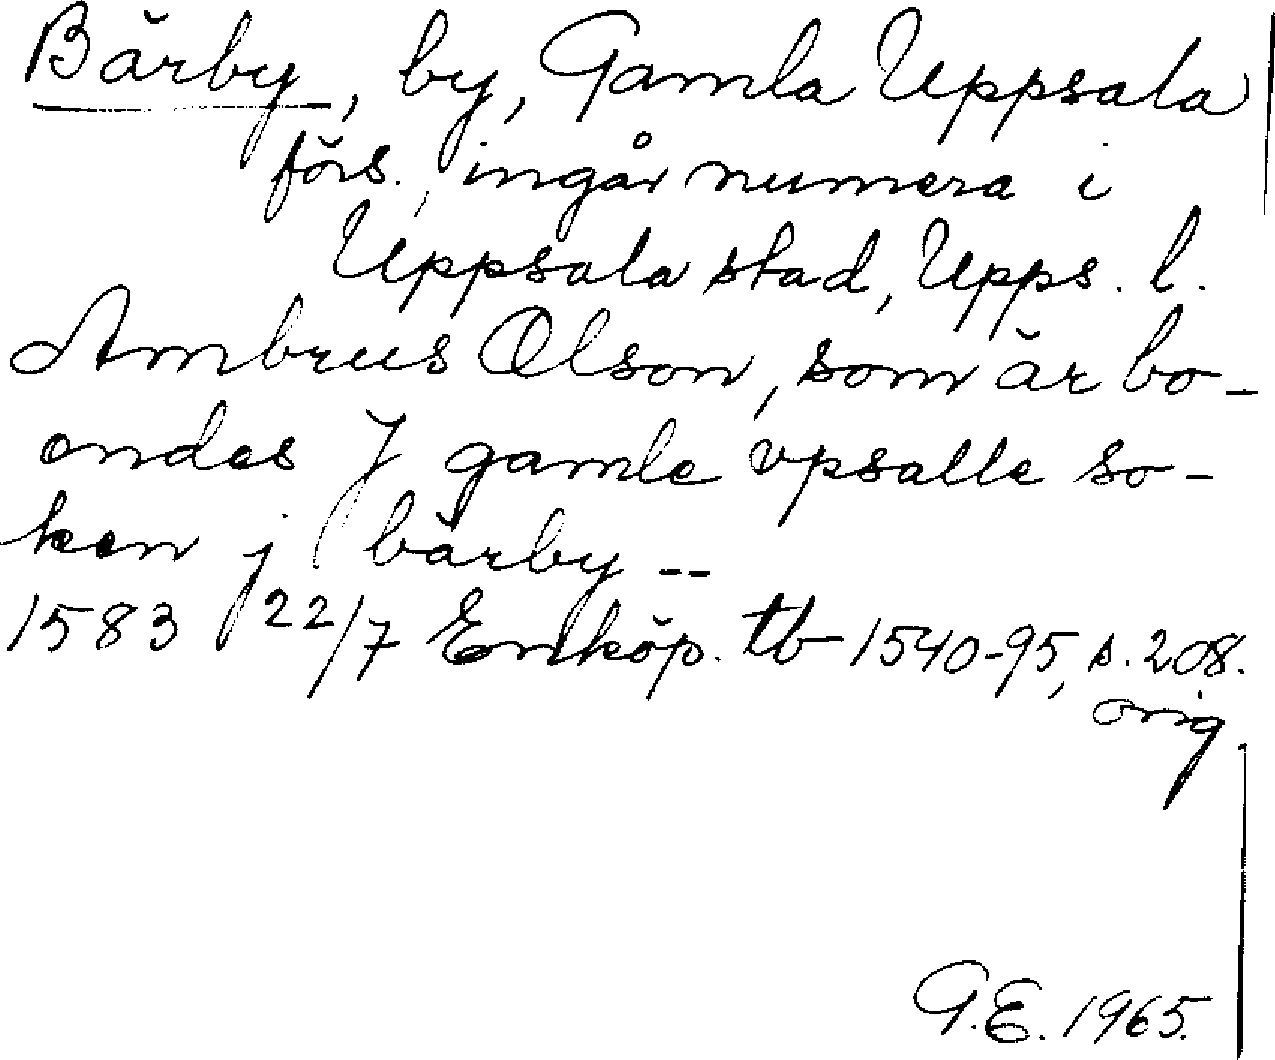 Bärby, by, Gamla Uppsala
förs., ingår numera i
Uppsala stad, Upps. l.
Ambrus Olson, som är bo-
endes J gamle vpsalle so-
ken j bärby --
1583 22/7 Enköp. tb 1540-95, s. 208.
orig.
G.E. 1965.